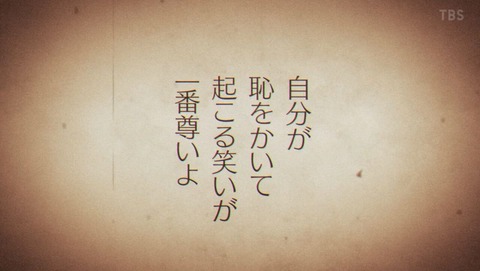 自分が
恥をかいて
起こる笑いが
一番尊いよ
TBS